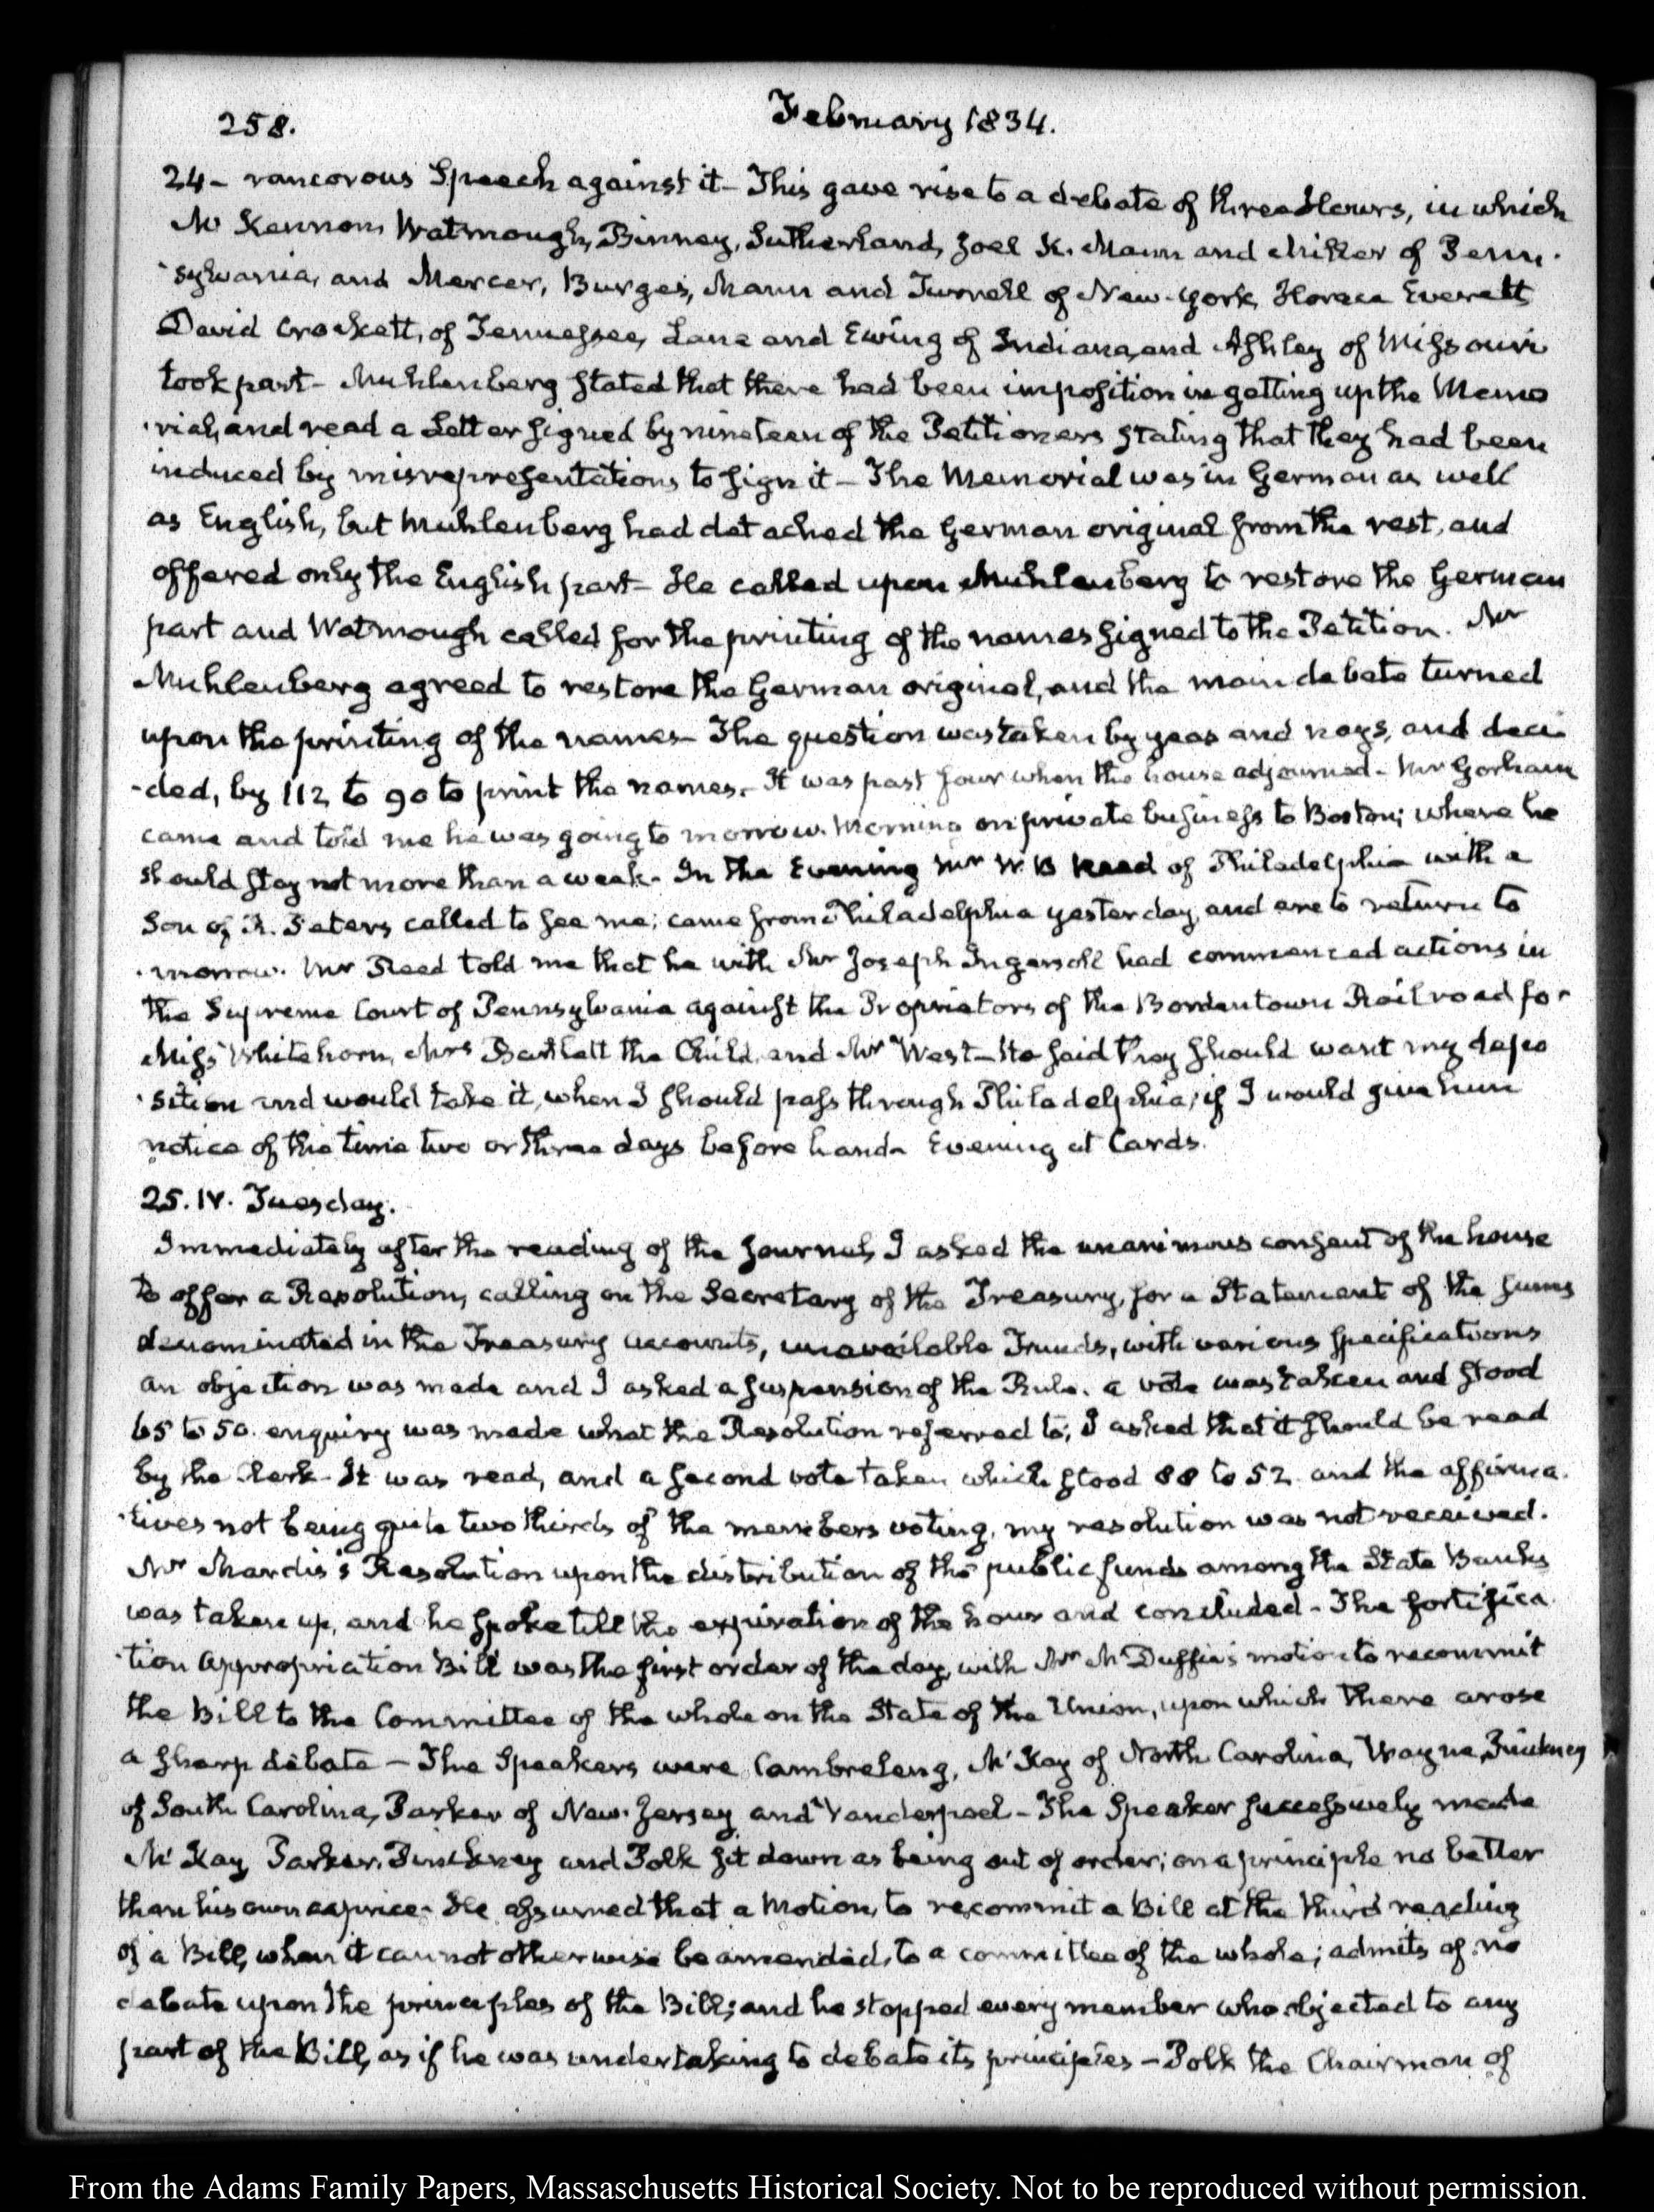 258.
February 1834.
24- rancorous Speech against it- This gave rise to a debate of three Hours, in which
Mr Kennon, Watmough, Binney, Sutherland, Joel K. Mann and Miller of Penn-
-sylvania, and Mercer, Burges, Mann and Turrell of New-York, Horace Everett
David Crockett, of Tennessee, Lane and Ewing of Indiana, and Ashley of Missouri
took part- Muhlenberg stated that there had been imposition in getting up the Memo
-rial, and read a Letter signed by nineteen of the Petitioners stating that they had been
induced by misrepresentations to sign it- The Memorial was in German as well
as English, but Muhlenberg had detached the German original from the rest, and
offered only the English part- He called upon Muhlenberg to restore the German
part and Watmough called for the printing of the names signed to the Petition. Mr
Muhlenberg agreed to restore the German original, and the main debate turned
upon the printing of the names- The question was taken by yeas and nays, and deci
-ded, by 112 to 90 to print the names.- It was past four when the house adjourned- Mr Gorham
came and told me he was going to morrow Morning on private business to Boston; where he
should stay not more than a week- In the Evening Mr W. B Reed of Philadelphia with a
Son of R. Peters called to see me; came from Philadelphia yesterday, and are to return to
-morrow. Mr Reed told me that he with Mr Joseph Ingersoll had commenced actions in
the Supreme Court of Pennsylvania against the Proprietors of the Bordentown Railroad for
Miss Whitehorn, Mrs Bartlett the Child, and Mr West- He said they should want my depo
-sition and would take it, when I should pass through Philadelphia; if I would give him
notice of the time two or three days before hand- Evening at Cards.
25. IV. Tuesday.
Immediately after the reading of the Journal, I asked the unanimous consent of the house
to offer a Resolution, calling on the Secretary of the Treasury, for a Statement of the sums
denominated in the Treasury accounts, unavailable Funds, with various specifications
an objection was made and I asked a suspension of the Rule. a vote was taken and stood
65 to 50. enquiry was made what the Resolution referred to; I asked that it should be read
by the Clerk- It was read, and a second vote taken which stood 88 to 52 and the affirma-
-tives not being quite two thirds of the members voting, my resolution was not received.
Mr Mardis's Resolution upon the distribution of the public funds among the State Banks
was taken up, and he spoke till the expiration of the hour and concluded- The fortifica
-tion appropriation Bill was the first order of the day, with Mr McDuffie's motion to recommit
the Bill to the Committee of the whole on the State of the Union, upon which there arose
a sharp debate - The Speakers were Cambreleng, McKay of North Carolina, Wayne, Pinckney
of South Carolina, Parker of New-Jersey and Vanderpoel- The Speaker successively made
McKay Parker, Pinckney and Polk sit down as being out of order; on a principle no better
than his own caprice- He assumed that a Motion, to recommit a Bill at the third reading
of a Bill, when it cannot otherwise be amended, to a committee of the whole; admits of no
debate upon the principles of the Bill; and he stopped every member who objected to any
part of the Bill, as if he was undertaking to debate its principles - Polk the Chairman of
From the Adams Family Papers, Massachusetts Historical Society. Not to be reproduced without permission.